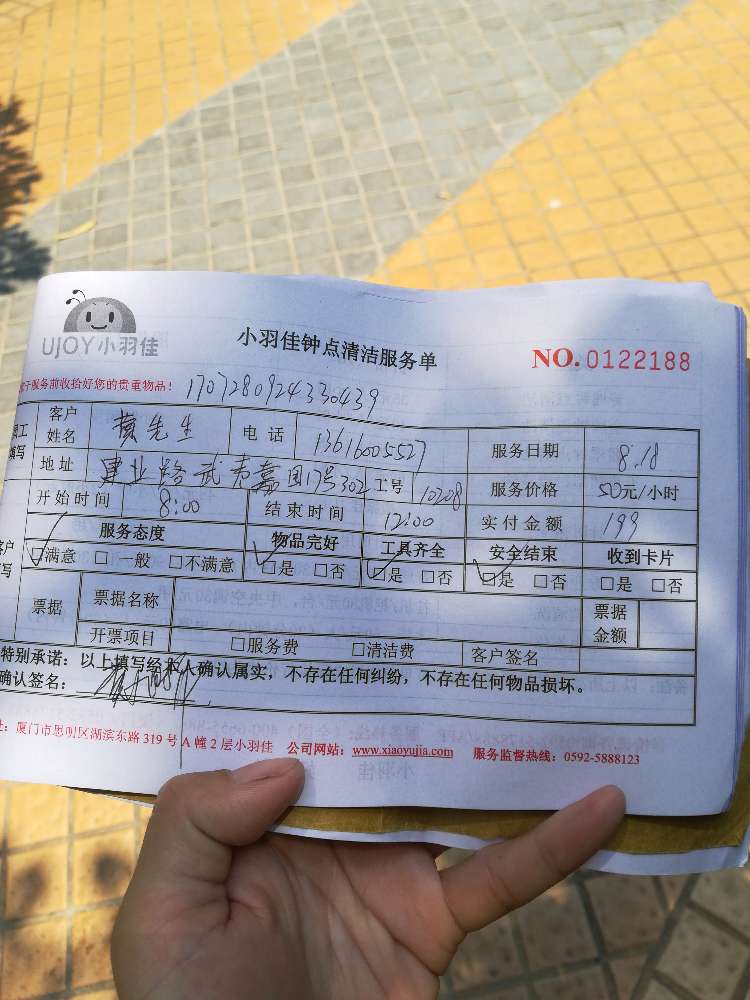 UJOY小羽佳
小羽佳钟点清洁服务单
NO.0122188
于服务前收拾好您的贵重物品！
1707280924330439
员工填写
客户姓名 黄先生 电话 13616005527 服务日期 8.18
地址 建业路武夷嘉园17号302 工号 10208 服务价格 50元/小时
开始时间 8:00 结束时间 12:00 实付金额 199
客户填写
服务态度 物品完好 工具齐全 安全结束 收到卡片
☑满意 □一般 □不满意 ☑是 □否 ☑是 □否 ☑是 □否 □是 □否
票据 票据名称 票据金额
开票项目 □服务费 □清洁费 客户签名
特别承诺：以上填写经本人确认属实，不存在任何纠纷，不存在任何物品损坏。
确认签名：
址：厦门市思明区湖滨东路319号A幢2层小羽佳 公司网站：www.xiaoyujia.com 服务监督热线：0592-5888123